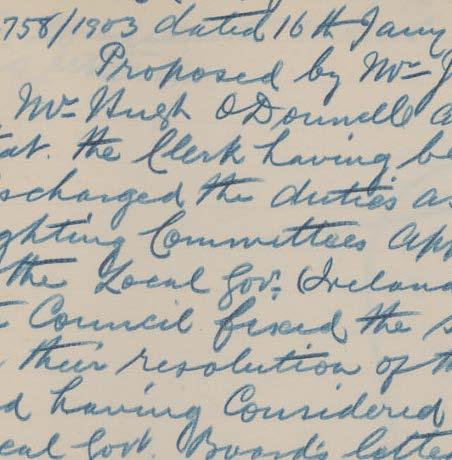 758/1903 dated 16th Jany
Proposed by Mr J
Mr Hugh O'Donnell a
tat. the Clerk having be
scharged the duties as
ghting Committees app
the Local Govt. (Ireland
t Council fixed the s
their resolution of th
d having Considered
cal Govt. Board's lette